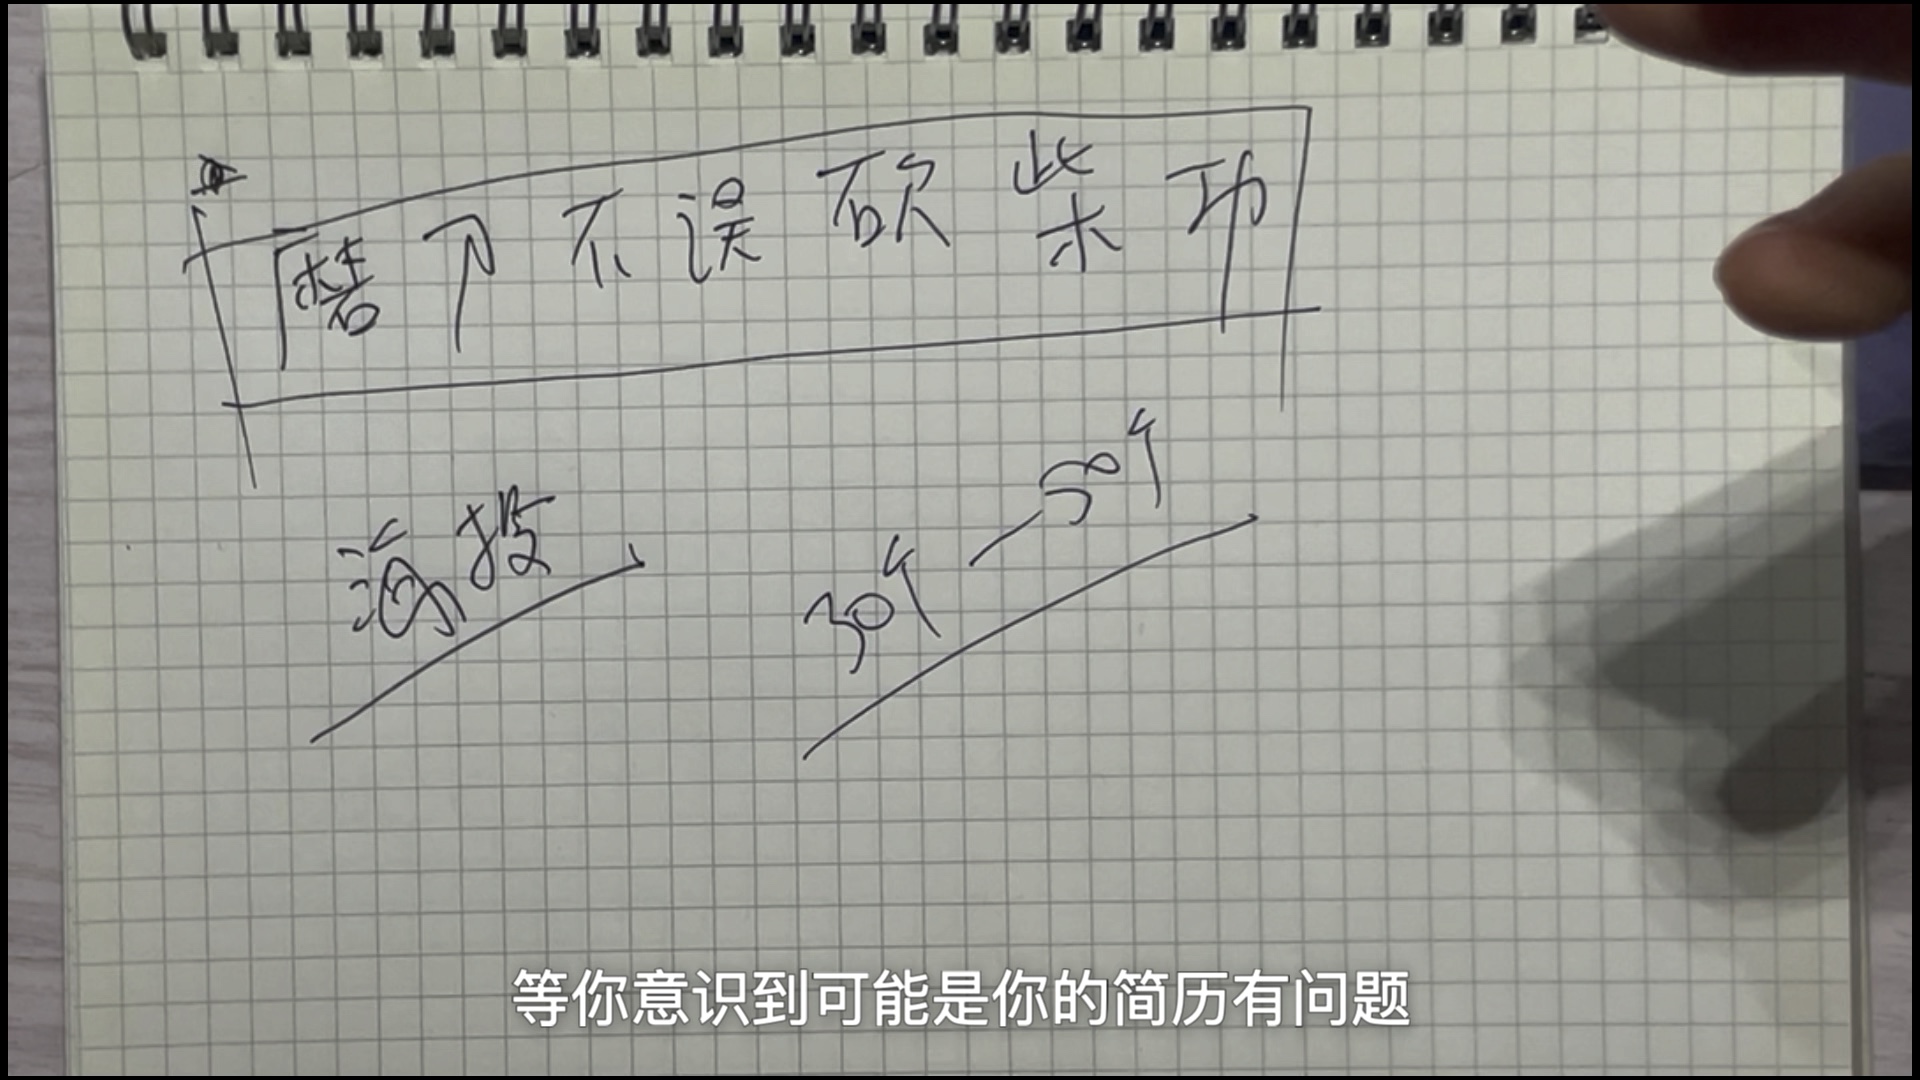 磨刀不误砍柴功
海投
30个—50个
等你意识到可能是你的简历有问题